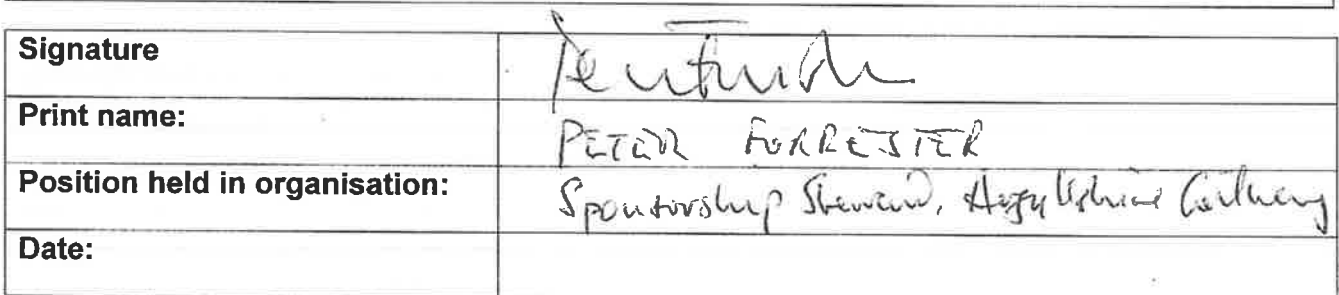 Signature
Print name: PETER FORRESTER
Position held in organisation: Sponsorship Steward,
Date: